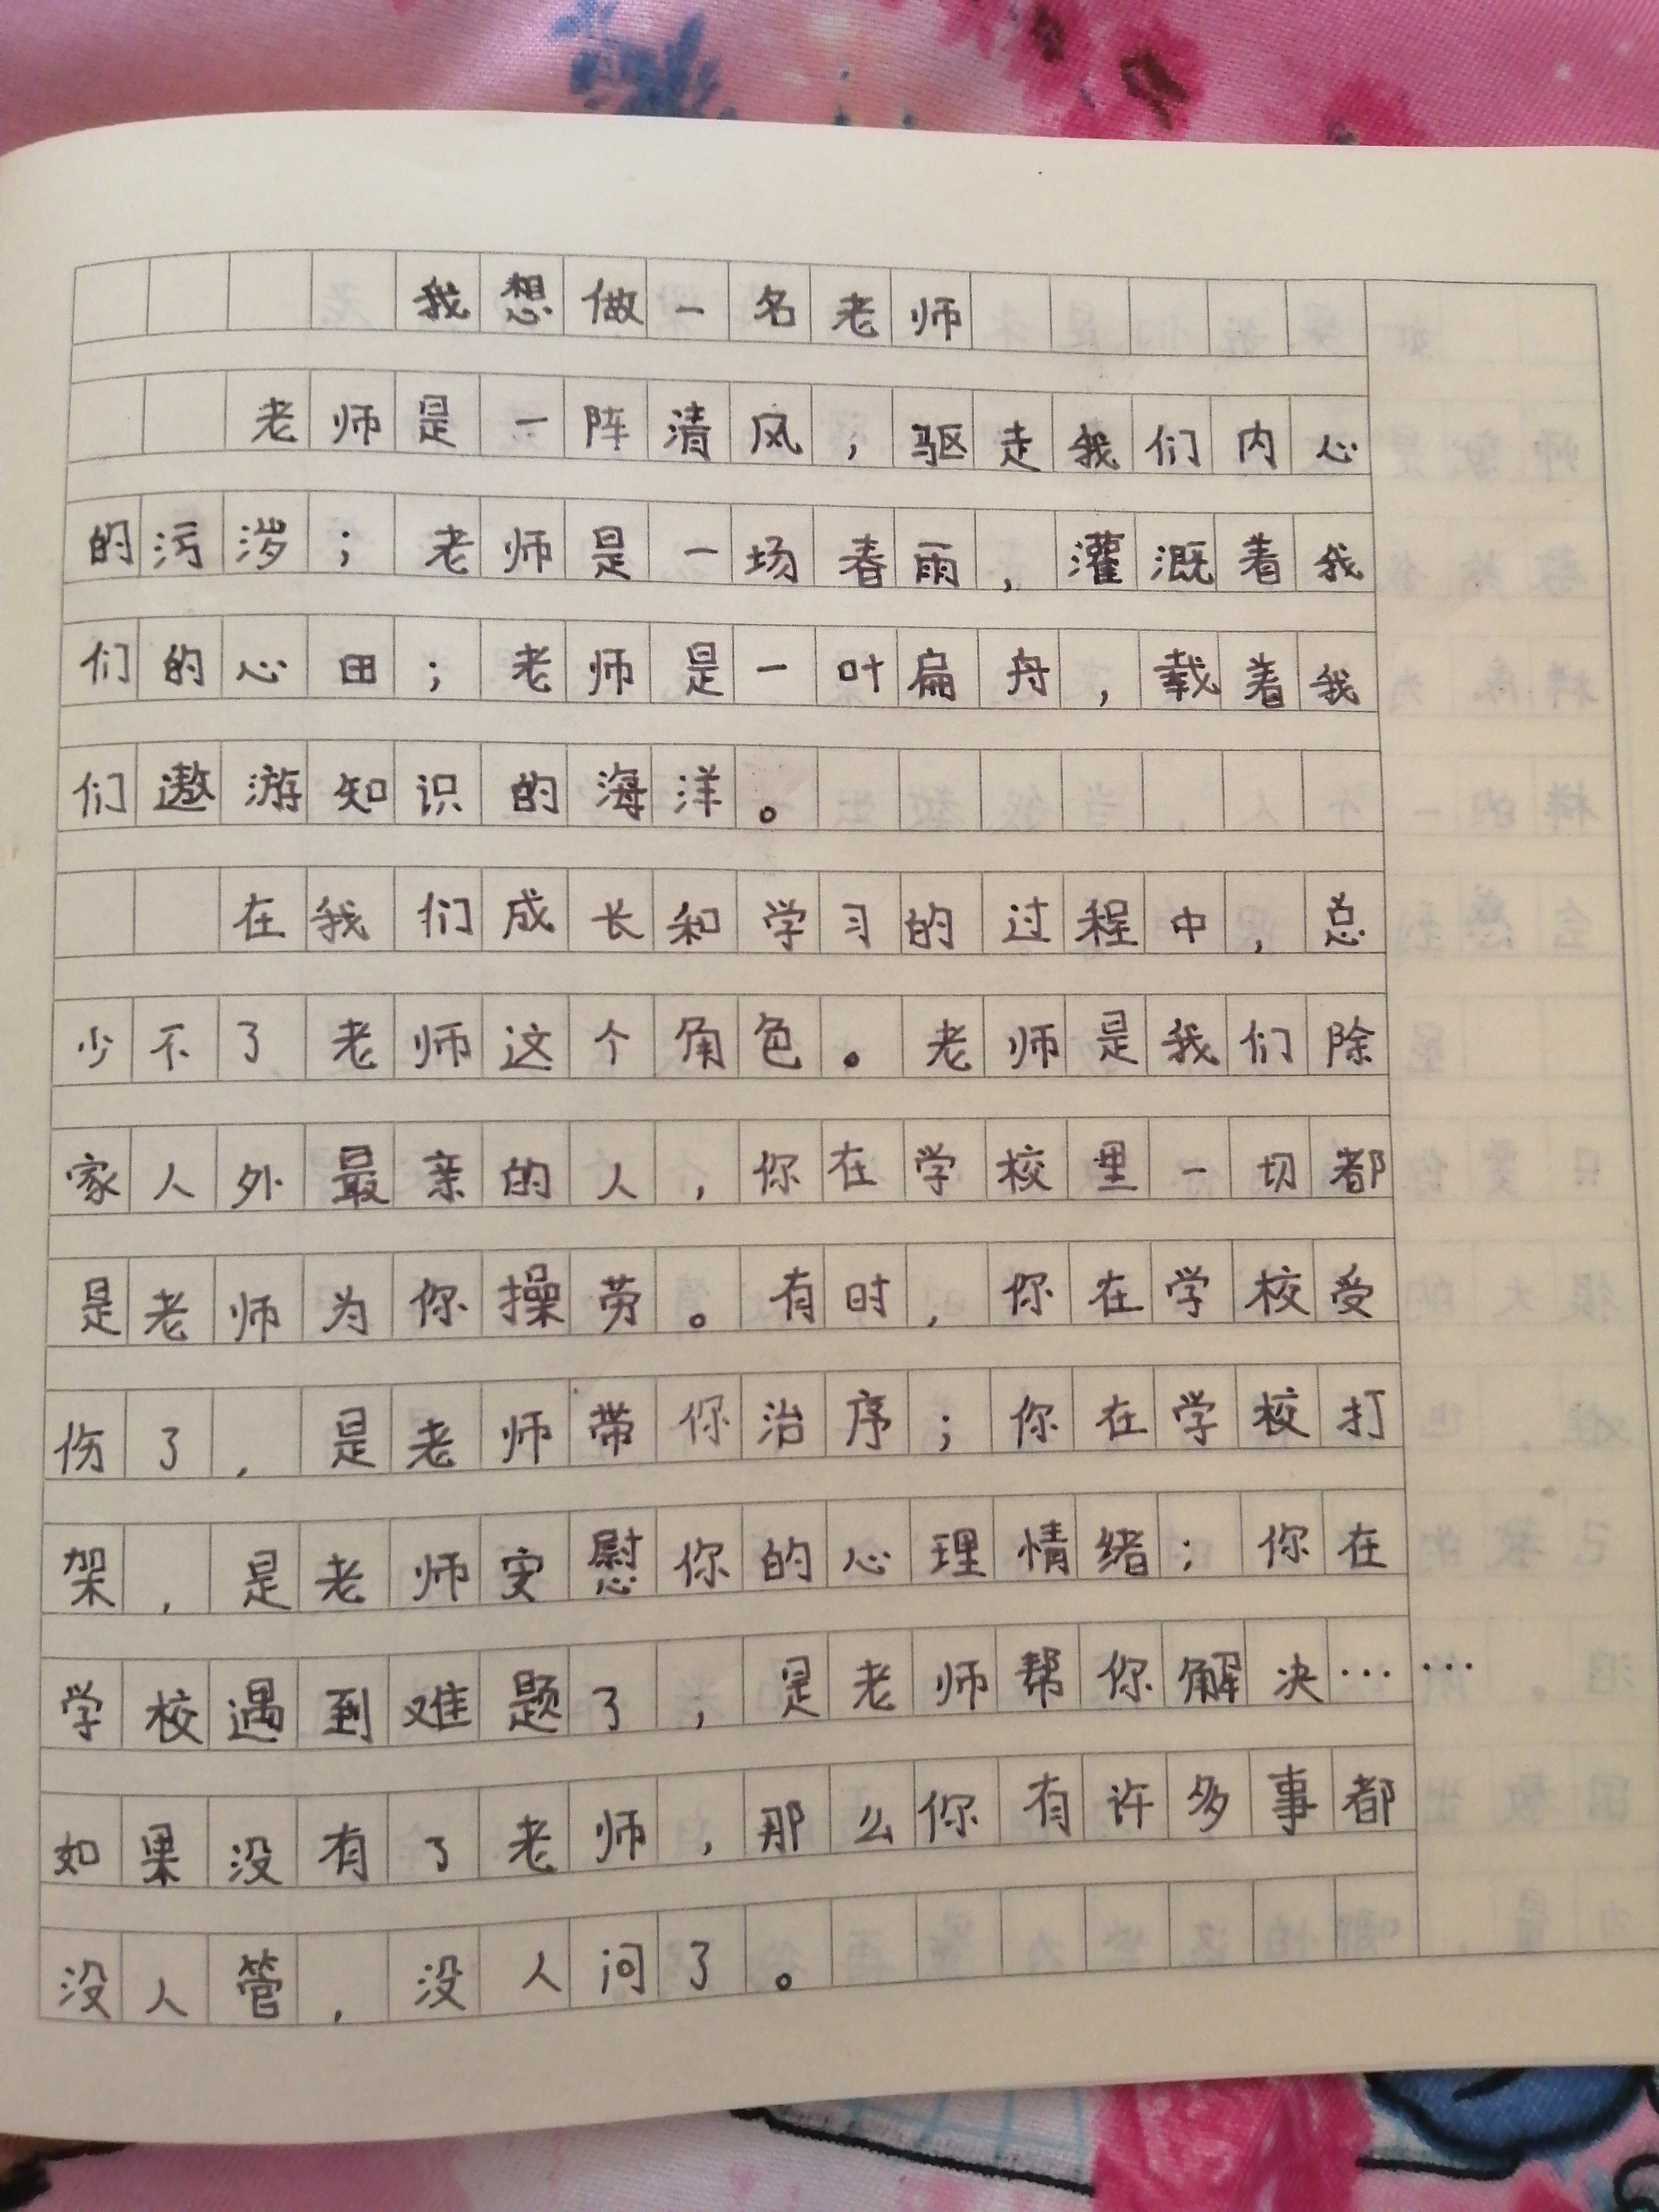 我想做一名老师
老师是一阵清风，驱走我们内心
的污涉；老师是一场春雨，灌溉着我
们的心田；老师是一叶扁舟，载着我
们遨游知识的海洋。
在我们成长和学习的过程中，总
少不了老师这个角色。老师是我们除
家人外最亲的人，你在学校里一切都
是老师为你操劳。有时，你在学校受
伤了，是老师带你治疗；你在学校打
架，是老师安慰你的心理情绪；你在
学校遇到难题了，是老师帮你解决……
如果没有了老师，那么你有许多事都
没人管，没人问了。